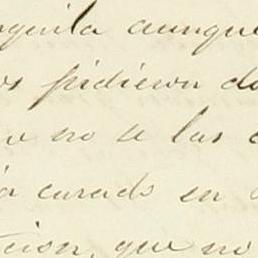 nquila aunque
os pidieron do
no se las
ia curado en
cion, que no